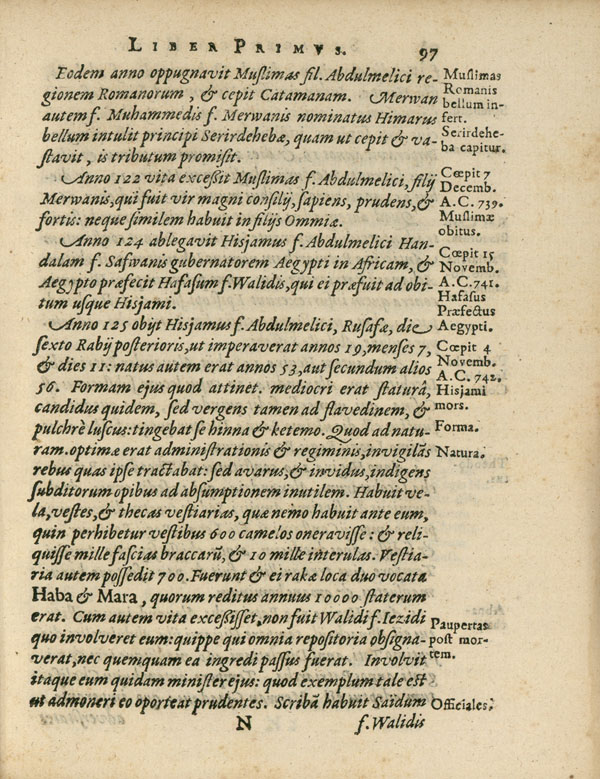 LIBER PRIMVS. 97
Eodem anno oppugnavit Muslimas fil. Abdulmelici re-
gionem Romanorum, & cepit Catamanam. Merwan
autem f. Muhammedis f. Merwanis nominatus Himarus
bellum intulit principi Serirdehebæ, quam ut cepit & va-
stavit, is tributum promisit.
Anno 122 vita excessit Muslimas f. Abdulmelici, filij
Merwanis, qui fuit vir magni consilij, sapiens, prudens, &
fortis: neque similem habuit in filijs Ommiæ.
Anno 124 ablegavit Hisjamus f. Abdulmelici Han-
dalam f. Safwanis gubernatorem Aegypti in Africam, &
Aegypto præfecit Hafasum f. Walidis, qui ei præfuit ad obi-
tum usque Hisjami.
Anno 125 obijt Hisjamus f. Abdulmelici, Rusafæ, die
sexto Rabij posterioris, ut imperaverat annos 19, menses 7,
& dies 11: natus autem erat annos 53, aut secundum alios
56. Formam ejus quod attinet. mediocri erat staturâ,
candidus quidem, sed vergens tamen ad flavedinem, &
pulchrè luscus: tingebat se hinna & ketemo. Quod ad natu-
ram. optimæ erat administrationis & regiminis, invigilãs
rebus quas ipse tractabat: sed avarus, & invidus, indigens
subditorum opibus ad absumptionem inutilem. Habuit ve-
la, vestes, & thecas vestiarias, quæ nemo habuit ante eum,
quin perhibetur vestibus 600 camelos oneravisse: & reli-
quisse mille fascias braccarũ, & 10 mille interulas. Vestia-
ria autem possedit 700. Fuerunt & ei rakæ loca duo vocata
Haba & Mara, quorum reditus annuus 10000 staterum
erat. Cum autem vita excessisset, non fuit Walidi f. Iezidi
quo involveret eum: quippe qui omnia repositoria obsigna-
verat, nec quemquam ea ingredi passus fuerat. Involvit
itaque eum quidam minister ejus: quod exemplum tale est
ut admoneri eo oporteat prudentes. Scribã habuit Saidum
N f. Walidis
Muslimas
Romanis
bellum in-
fert.
Serirdehe-
ba capitur.
Cœpit 7
Decemb.
A.C. 739.
Muslimæ
obitus.
Cœpit 15
Novemb.
A.C. 741.
Hafasus
Præfectus
Aegypti.
Cœpit 4
Novemb.
A.C. 742.
Hisjami
mors.
Forma.
Natura.
Paupertas
post mor-
tem.
Officiales.